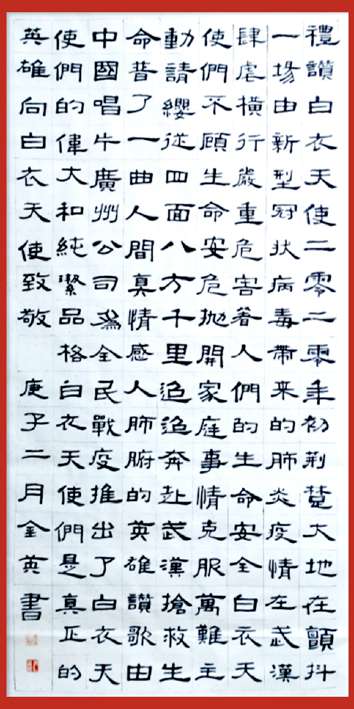 禮讚白衣天使二零二零年初荆楚大地在顫抖
一場由新型冠狀病毒帶來的肺炎疫情在武漢
肆虐橫行嚴重危害着人們的生命安全白衣天
使們不顧生命安危抛開家庭事情克服萬難主
動請纓從四面八方千里迢迢奔赴武漢搶救生
命普了一曲人間真情感人肺腑的英雄讚歌由
中國唱片廣州公司爲全民戰疫推出了白衣天
使們的偉大和純潔品格白衣天使們是真正的
英雄向白衣天使致敬 庚子二月金英書